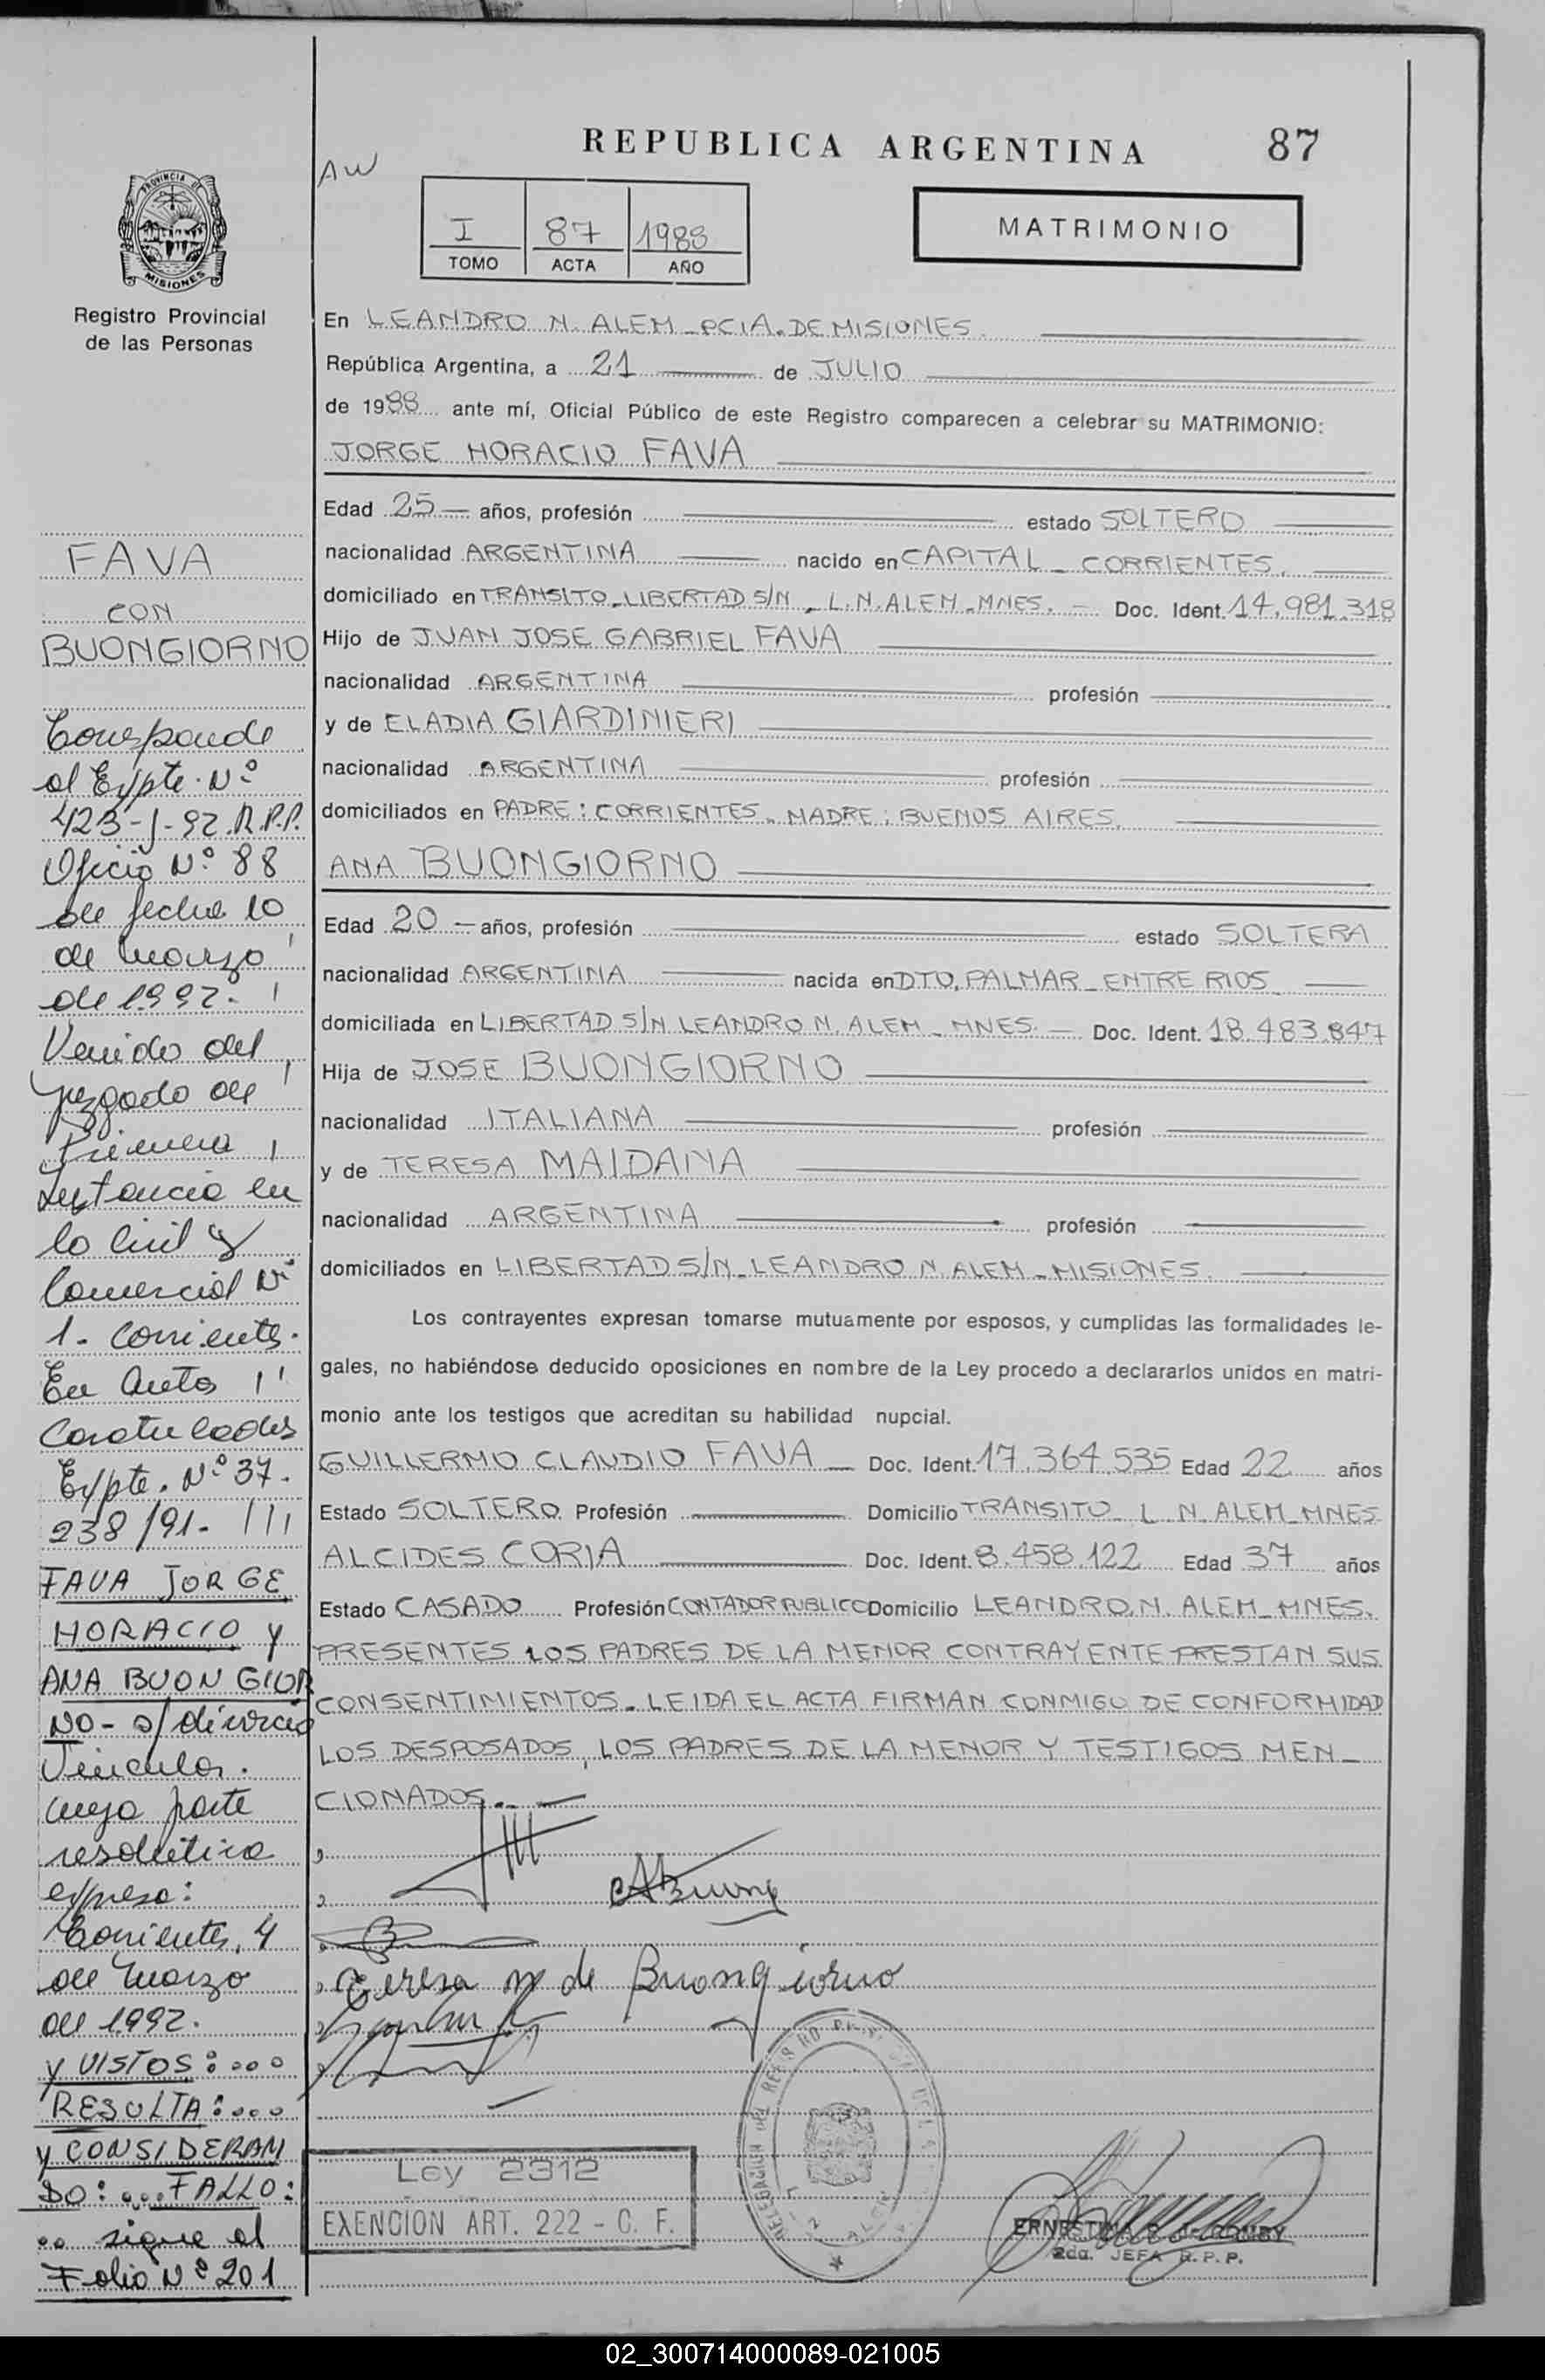 REPUBLICA ARGENTINA
87
AW
I 87 1988
TOMO ACTA AÑO
MATRIMONIO
PROVINCIA DE
MISIONES
Registro Provincial
de las Personas
En LEANDRO N. ALEM - PCIA. DE MISIONES
República Argentina, a 21 de JULIO
de 1988 ante mí, Oficial Público de este Registro comparecen a celebrar su MATRIMONIO:
JORGE HORACIO FAVA
Edad 25 años, profesión estado SOLTERO
nacionalidad ARGENTINA nacido en CAPITAL - CORRIENTES.
domiciliado en TRANSITO - LIBERTAD S/N - L.N. ALEM - MNES. - Doc. Ident. 14.981.318
Hijo de JUAN JOSE GABRIEL FAVA
nacionalidad ARGENTINA profesión
y de ELADIA GIARDINIERI
nacionalidad ARGENTINA profesión
domiciliados en PADRE: CORRIENTES - MADRE: BUENOS AIRES.
ANA BUONGIORNO
Edad 20 - años, profesión estado SOLTERA
nacionalidad ARGENTINA nacida en DTO. PALMAR - ENTRE RIOS
domiciliada en LIBERTAD S/N LEANDRO N. ALEM - MNES. - Doc. Ident. 18.483.847
Hija de JOSE BUONGIORNO
nacionalidad ITALIANA profesión
y de TERESA MAIDANA
nacionalidad ARGENTINA profesión
domiciliados en LIBERTAD S/N - LEANDRO N. ALEM - MISIONES.
Los contrayentes expresan tomarse mutuamente por esposos, y cumplidas las formalidades le-
gales, no habiéndose deducido oposiciones en nombre de la Ley procedo a declararlos unidos en matri-
monio ante los testigos que acreditan su habilidad nupcial.
GUILLERMO CLAUDIO FAVA Doc. Ident. 17.364.535 Edad 22 años
Estado SOLTERO Profesión Domicilio TRANSITO L. N. ALEM - MNES
ALCIDES CORIA Doc. Ident. 8.458.122 Edad 37 años
Estado CASADO Profesión CONTADOR PUBLICO Domicilio LEANDRO N. ALEM - MNES.
PRESENTES LOS PADRES DE LA MENOR CONTRAYENTE PRESTAN SUS
CONSENTIMIENTOS - LEIDA EL ACTA FIRMAN CONMIGO DE CONFORMIDAD
LOS DESPOSADOS, LOS PADRES DE LA MENOR Y TESTIGOS MEN-
CIONADOS.-
Teresa M de Buongiorno
Ley 2312
EXENCION ART. 222 - C. F.
2da. JEFA R.P.P.
FAVA
CON
BUONGIORNO
Corresponde
al Expte. Nº
423-J-92. R.P.P.
Oficio Nº 88
de fecha 10
de marzo
de 1992.
Venido del
Juzgado de
Primera
Instancia en
lo Civil y
Comercial Nº
1 - Corrientes.
En Autos
Caratulados
Expte. Nº 37.
238/91-
FAVA JORGE
HORACIO Y
ANA BUON GIOR
NO - s/ divorcio
Vincular.
cuya parte
resolutiva
expresa:
Corrientes, 4
de Marzo
de 1992.
Y VISTOS:...
RESULTA:...
Y CONSIDERAN
DO:... FALLO:
.. sigue al
Folio Nº 201
02_300714000089-021005